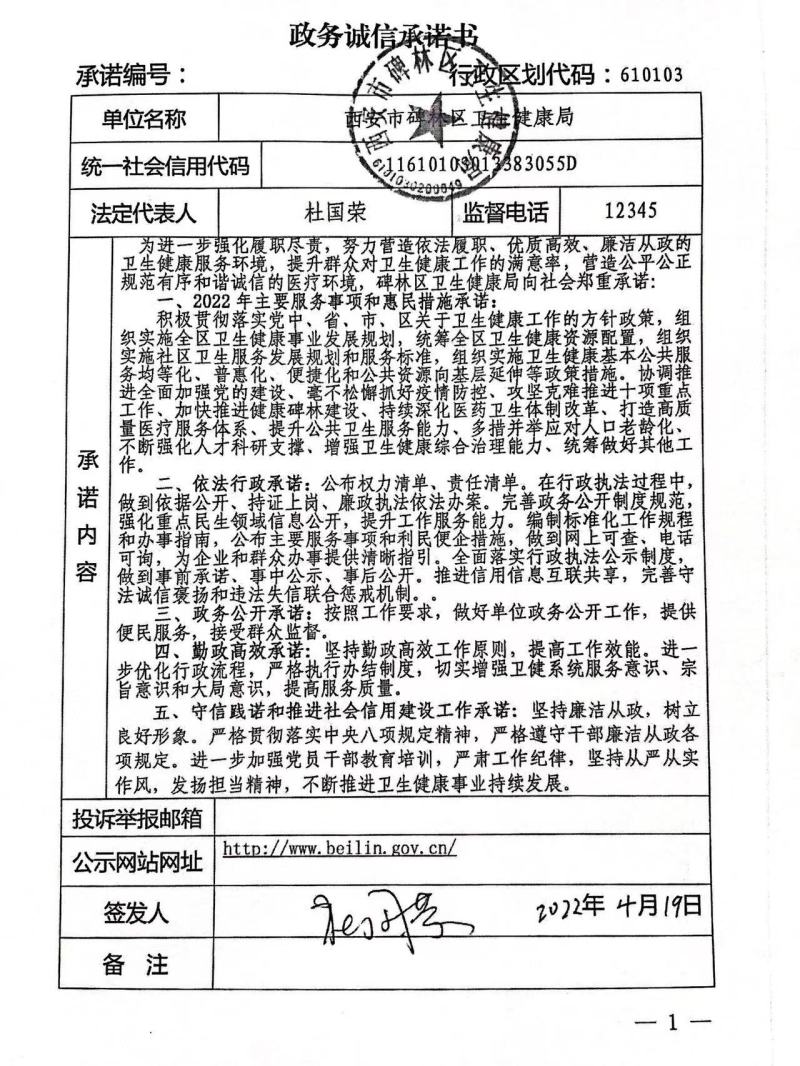 政务诚信承诺书
承诺编号：
行政区划代码：610103
单位名称
西安市碑林区卫生健康局
统一社会信用代码
11610103013383055D
西安市碑林区卫生健康局
6101030200049
法定代表人
杜国荣
监督电话
12345
承诺内容
为进一步强化履职尽责，努力营造依法履职、优质高效、廉洁从政的
卫生健康服务环境，提升群众对卫生健康工作的满意率，营造公平公正
规范有序和谐诚信的医疗环境，碑林区卫生健康局向社会郑重承诺：
一、2022年主要服务事项和惠民措施承诺：
积极贯彻落实党中、省、市、区关于卫生健康工作的方针政策，组
织实施全区卫生健康事业发展规划，统筹全区卫生健康资源配置，组织
实施社区卫生服务发展规划和服务标准，组织实施卫生健康基本公共服
务均等化、普惠化、便捷化和公共资源向基层延伸等政策措施。协调推
进全面加强党的建设、毫不松懈抓好疫情防控、攻坚克难推进十项重点
工作、加快推进健康碑林建设、持续深化医药卫生体制改革、打造高质
量医疗服务体系、提升公共卫生服务能力、多措并举应对人口老龄化、
不断强化人才科研支撑、增强卫生健康综合治理能力、统筹做好其他工
作。
二、依法行政承诺：公布权力清单、责任清单。在行政执法过程中，
做到依据公开、持证上岗、廉政执法依法办案。完善政务公开制度规范，
强化重点民生领域信息公开，提升工作服务能力。编制标准化工作规程
和办事指南，公布主要服务事项和利民便企措施，做到网上可查、电话
可询，为企业和群众办事提供清晰指引。全面落实行政执法公示制度，
做到事前承诺、事中公示、事后公开。推进信用信息互联共享，完善守
法诚信褒扬和违法失信联合惩戒机制。。
三、政务公开承诺：按照工作要求，做好单位政务公开工作，提供
便民服务，接受群众监督。
四、勤政高效承诺：坚持勤政高效工作原则，提高工作效能。进一
步优化行政流程，严格执行办结制度，切实增强卫健系统服务意识、宗
旨意识和大局意识，提高服务质量。
五、守信践诺和推进社会信用建设工作承诺：坚持廉洁从政，树立
良好形象。严格贯彻落实中央八项规定精神，严格遵守干部廉洁从政各
项规定。进一步加强党员干部教育培训，严肃工作纪律，坚持从严从实
作风，发扬担当精神，不断推进卫生健康事业持续发展。
投诉举报邮箱
公示网站网址
http://www.beilin.gov.cn/
签发人
杜国荣
2022年 4月19日
备 注
— 1 —